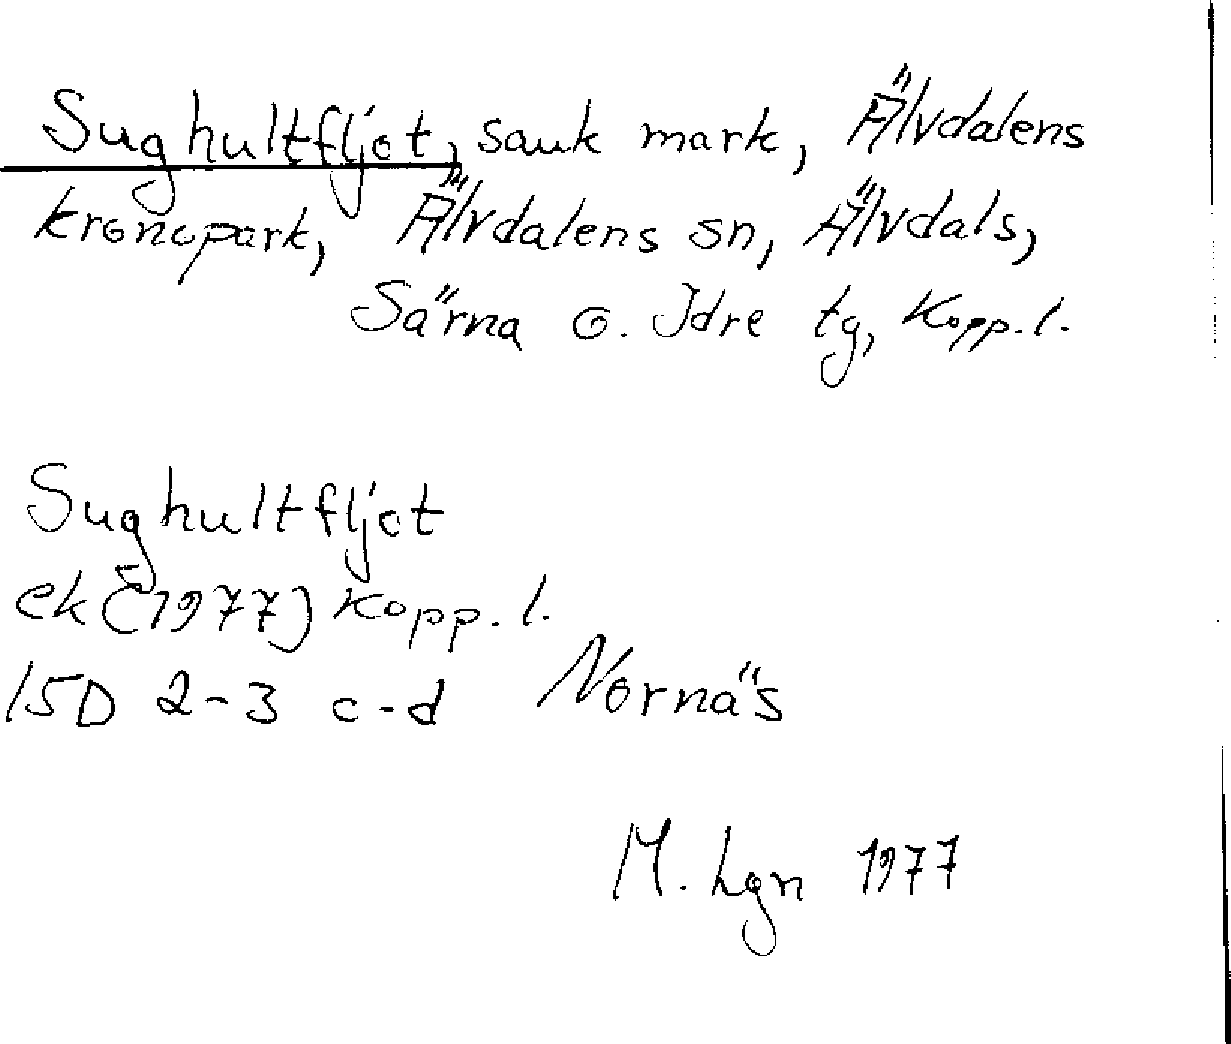 Sughultfljot, sank mark, Älvdalens
kronopark, Älvdalens sn, Älvdals,
Särna o. Idre tg, Kopp. l.
Sughultfljot
ek (1977) Kopp. l.
15D 2-3 c-d Nornäs
M. Lgn 1977